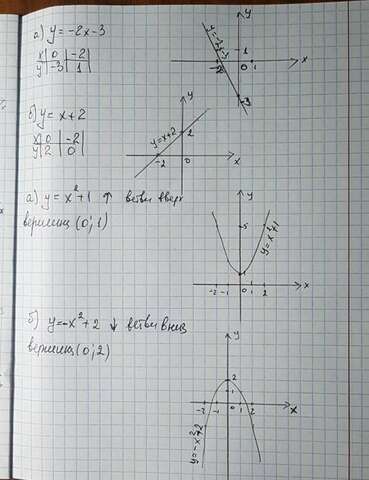 а) y = -2x-3
x | 0 | -2 |
y | -3 | 1 |
y
y=-2x-3
1
-2
0 1
x
-3
б) y = x+2
x | 0 | -2 |
y | 2 | 0 |
y
y=x+2
2
-2
0
x
а) y = x²+1 ↑ ветви вверх
вершина (0; 1)
y
5
y=x²+1
1
-2 -1 0 1 2
x
б) y=-x²+2 ↓ ветви вниз
вершина (0; 2)
y
2
1
-2 -1 0 1 2
x
y=-x²+2